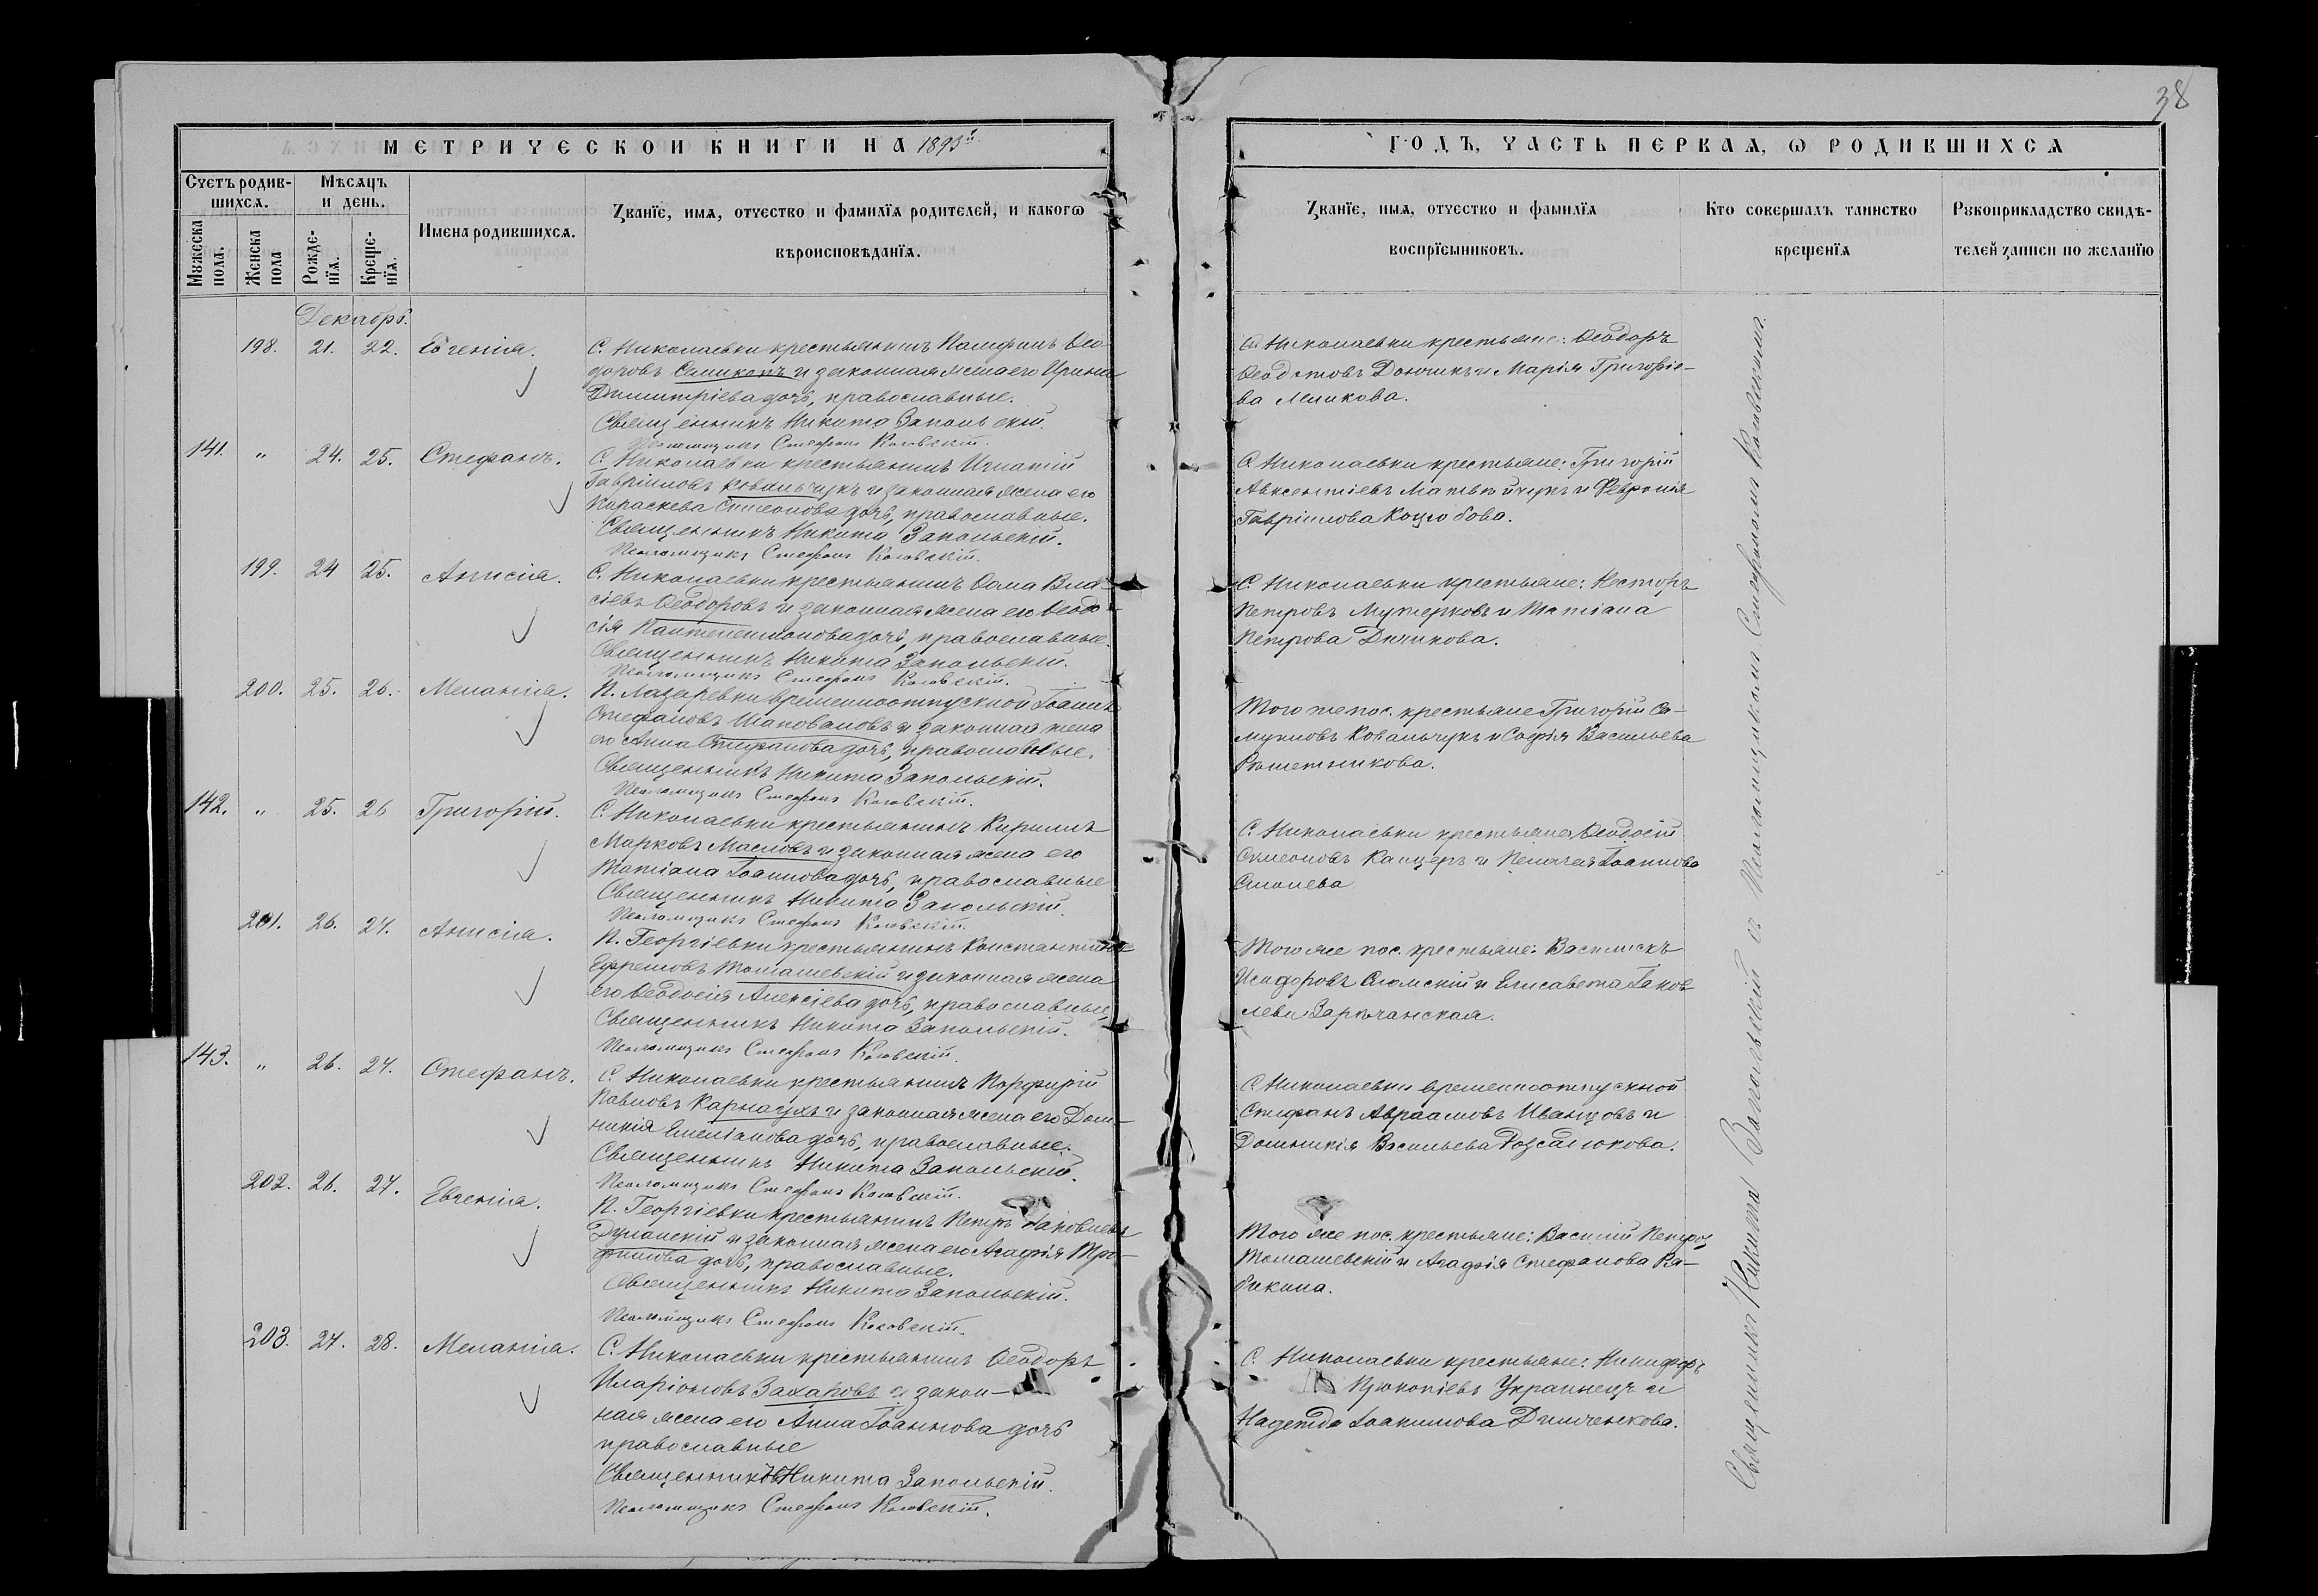 38
МЕТРИЧЕСКОИ КНИГИ НА 1893й
ГОДЪ, ЧАСТЬ ПЕРВАѦ, Ѡ РОДИВШИХСѦ
Счетъ родив-
шихсѧ.
Мужеска
пола.
Женска
пола
Мѣсѧцъ
и день.
Рожде-
нїѧ.
Креще-
нїѧ.
Имена родившихсѧ.
Званїе, имѧ, отчество и фамилїѧ родителей, и какогѡ
вѣроисповѣданїѧ.
Званїе, имѧ, отчество и фамилїѧ
воспрїемниковъ.
Кто совершалъ таинство
крещенїѧ
Рукоприкладство свидѣ-
телей записи по желанїю
Декабрь.
198. 21. 22. Евгенія.
С. Николаевки крестьянинъ Памфилъ Ѳео
доровъ и законная жена его Ирина
Димитріева дочь, православные.
Священникъ Никита Запольскій.
Псаломщикъ Стефанъ
Николаевки крестьяне: Ѳеодоръ
и Марія Григоріе-
ва
141. " 24. 25. Стефанъ.
С. Николаевки крестьянинъ Игнатій
Гавріиловъ Ковальчукъ и законная жена его
Параскева Симеонова дочь, православные.
Священникъ Никита Запольскій.
Псаломщикъ Стефанъ
С. Николаевки крестьяне: Григорій
Авксентіевъ Матвійчукъ и Февронія
Гавріилова Коцюбова.
199. 24 25. Анисія.
С. Николаевки крестьянинъ Ѳома Вла-
сіевъ Ѳеодоровъ и законная жена его Ѳеодо
сія Пантелеимонова дочь, православные.
Священникъ Никита Запольскій.
Псаломщикъ Стефанъ
С. Николаевки крестьяне: Несторъ
Петровъ и Татіана
Петрова Дичикова.
200. 25. 26. Меланія.
П. Лазаревки временноотпускной Іоаннъ
Стефановъ Шаповаловъ и законная жена
его Анна Стефанова дочь, православные.
Священникъ Никита Запольскій.
Псаломщикъ Стефанъ
Того же пос. крестьяне Григорій Са-
муиловъ Ковальчукъ и Софія Васильева
Решетникова.
142. " 25. 26 Григорій.
С. Николаевки крестьянинъ Кириллъ
Марковъ Масловъ и законная жена его
Татіана Іоаннова дочь, православные
Священникъ Никита Запольскій.
Псаломщикъ Стефанъ
С. Николаевки крестьяне Ѳеодосій
Симеоновъ Канцеръ и Пелагея Іоаннова
201. 26. 27. Анисія.
П. Георгіевки крестьянинъ Константинъ
Ефремовъ Томашевскій и законная жена
его Ѳеодосія Алексіева дочь, православные,
Священникъ Никита Запольскій.
Псаломщикъ Стефанъ
Того же пос. крестьяне: Василискъ
Исидоровъ и Елисавета Іаков
лева Заречанская.
143. " 26. 27. Стефанъ.
С. Николаевки крестьянинъ Порфирій
Павловъ Карнаухъ и законная жена его Дом-
никія Емеліанова дочь, православные.
Священникъ Никита Запольскій.
Псаломщикъ Стефанъ
С. Николаевки временноотпускной
Стефанъ Авраамовъ Иванцовъ и
Домникія Васильева
202. 26. 27. Евгенія.
П. Георгіевки крестьянинъ Петръ Іаковлевъ
и законная жена его Агафія Тро-
фимова дочь, православные.
Священникъ Никита Запольскій.
Псаломщикъ Стефанъ
Того же пос. крестьяне: Василій Петров
Томашевскій и Агафія Стефанова Ря-
бикина.
203. 27. 28. Меланія.
С. Николаевки крестьянинъ Ѳеодоръ
Иларіоновъ Захаровъ и закон-
ная жена его Анна Іоаннова дочь
православные
Священникъ Никита Запольскій.
Псаломщикъ Стефанъ
С. Николаевки крестьяне: Никифоръ
Прокопіевъ Украинецъ и
Надежда Іоакимова Димченкова.
Священникъ Никита Запольскій съ Псаломщикомъ Стефаномъ